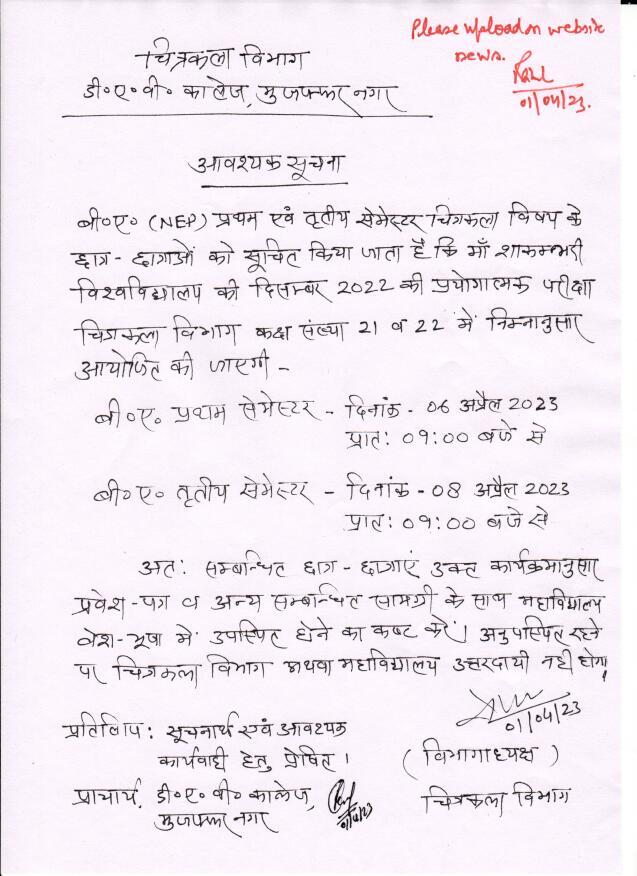 Please upload on website
news.
01/04/23.
चित्रकला विभाग
डी०ए०वी० कालेज, मुजफ्फर नगर
आवश्यक सूचना
बी०ए० (NEP) प्रथम एवं तृतीय सेमेस्टर चित्रकला विषय के
छात्र - छात्राओं को सूचित किया जाता है कि माँ शाकम्भरी
विश्वविद्यालय की दिसम्बर 2022 की प्रयोगात्मक परीक्षा
चित्रकला विभाग कक्ष संख्या 21 व 22 में निम्नानुसार
आयोजित की जाएगी -
बी०ए० प्रथम सेमेस्टर - दिनांक - 06 अप्रैल 2023
प्रातः 09:00 बजे से
बी०ए० तृतीय सेमेस्टर - दिनांक - 08 अप्रैल 2023
प्रातः 09:00 बजे से
अतः सम्बन्धित छात्र - छात्राएं उक्त कार्यक्रमानुसार
प्रवेश-पत्र व अन्य सम्बन्धित सामग्री के साथ महाविद्यालय
वेश-भूषा में उपस्थित होने का कष्ट करें। अनुपस्थित रहने
पर चित्रकला विभाग अथवा महाविद्यालय उत्तरदायी नही होगा।
01/04/23
प्रतिलिपि : सूचनार्थ एवं आवश्यक
कार्यवाही हेतु प्रेषित ।
(विभागाध्यक्ष)
प्राचार्य, डी०ए०वी० कालेज,
मुजफ्फर नगर
चित्रकला विभाग